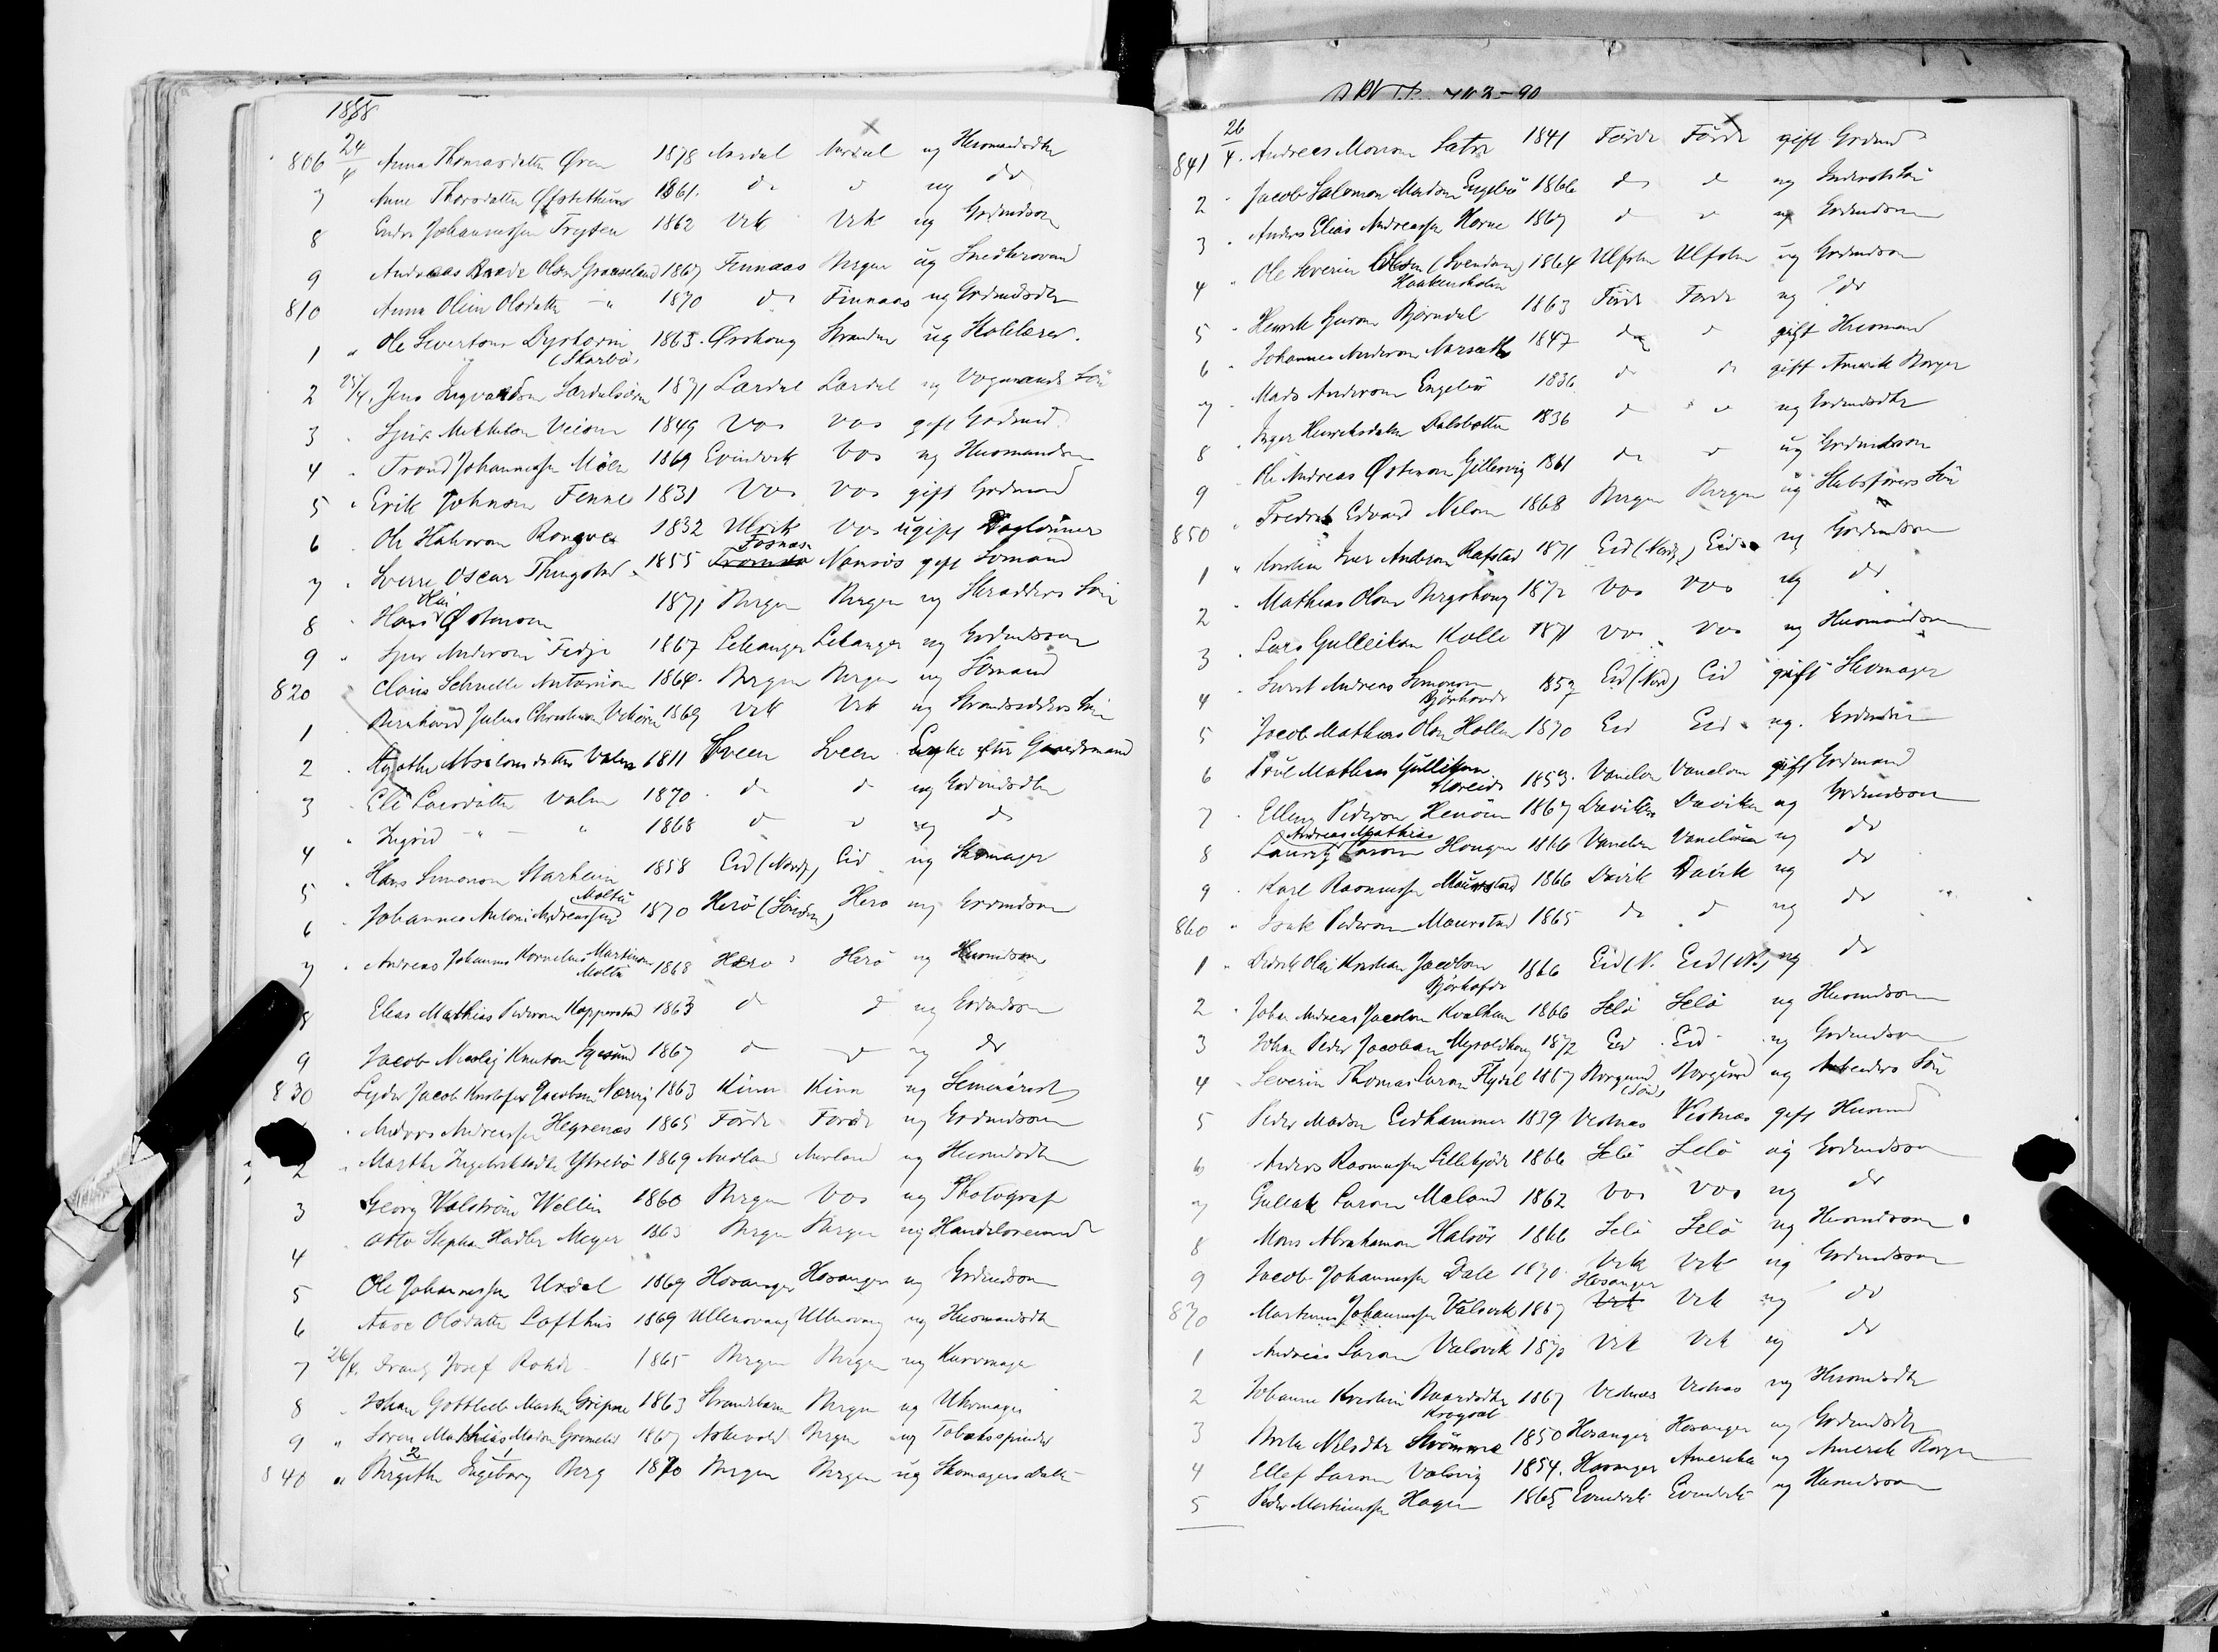 1888
806 24/4 Anna Thomasdatter Øren 1878 Aardal Aardal ug Husmandsdtr
7 Anne Thorsdatter 1861. do do ug do
8 Endre Johannessen Trysen 1862 Vik Vik ug Grdmdsøn
9 Andreas Brede Olsen Graseland 1867 Finnaas Bergen ug Snedkersvend
810 Anna Olina Olsdatter - " 1870 do Finnaas ug Grdmdsdtr
1 " Ole Sivertsen 1863. Ørskoug Stranden ug Skolelærer.
(Skarbø)
2 25/4. Jens Ingvaldsen Lærdalsøren 1871 Lærdal Lærdal ug Vognmands Søn
3 " Sjur Mikkelsen 1849 Vos Vos gift Grdmd
4 " Trond Johannessen Møen 1869 Evindvik Vos ug Husmandsøn
5 " Erik Johnson Fenne 1831 Vos Vos gift Grdmand
6 . Ole Halvorsen Rongve 1832 Ulvik Vos ugift Daglönner
Fosnæs
7 . Sverre Oscar 1855 Tromsö Namsos gift Sömand
Olai
8 . Hans Østensen 1871 Bergen Bergen ug Skradders Søn
9 " Sjur Anderson Fedje 1867 Leikanger Leikanger ug Grdmdsøn
820 Claus Schnelle Antonison 1864. Bergen Bergen ug Sömand
1 Bernhard Julius Christensen 1869 Vik Vik ug Strandsidders Søn
2 . Agathe Absalonsdatter Valen 1811 Sveen Sveen Enke efter Gaardmand
3 . Eli Larsdatter Valen 1870 do do ug Grdmdsdtr
4 " Ingrid - " - " 1868 do do ug do
5 " Hans Simonson Starheim 1858 Eid (Nordf) Eid ug Skomager
Moltu
6 . Johannes Antoni Andreassen 1870 Herö (Söndm) Herö ug Grdmdsøn
7 . Andreas Johannes Kornelius Martinsen 1868 Herö Herö ug Husmdsøn
Moltu
8 Elias Mathias Pederson Kopperstad 1863 do do ug Grdmdsøn
9 Jacob Nicolaj Knutson Igesund 1867 do do ug do
830 Lyder Jacob Kristofer Jacobsen 1863 Kinn Kinn ug Seminarist
. Anders Andreassen Hegrenæs 1865 Förde Förde ug Grdmdsøn
2 " Marthe Ingebrigtsdtr Ytrebø 1869 Aurland Aurland ug Husmdsdtr
3 Georg Walström Wellin 1860 Bergen Vos ug Photograf
4 . Otto Stephan Hadler Meyer 1863 Bergen Bergen ug Handelsremand
5 Ole Johannessen Urdal 1869 Hosanger Hosanger ug Grdmdsøn
6 Aase Olsdatter Lofthus 1869 Ullensvang Ullensvang ug Husmandsdtr
7 26/4. Frantz Josef Rohde 1865 Bergen Bergen ug Kurvmager
8 . Johan Gottlieb Martin Gripne 1863 Strandebarm Bergen ug Uhrmager
9 " Søren Mathias Madsen 1867 Askevold Bergen ug Tobaksspinder
840 " Birgitte Ingeborg Berg 1870 Bergen Bergen ug Skomagers Datter
841 26/4. Andreas Monsen Satre 1841 Förde Förde gift Grdmd
2 . Jacob Salomon Madsen Engebø 1866 do do ug Inderstsøn
3 . Anders Elias Andreassen Horne 1867 do do ug Grdmdsøn
4 " Ole Severin (Svendsen) 1864 Ulfsten Ulfsten ug Grdmdsøn
Haakensholm
5 " Henrik Bjørndal 1863 Förde Förde ug do
6 " Johannes Anderson 1847 do do gift Husmand
7 . Mads Anderson Engebø 1836 do do gift Amerik Borger
8 . Inger Henriksdatter Dalsbotten 1836 do do ug Grdmdsdtr
9 . Ole Andreas Østenson 1861 do do ug Grdmdsøn
850 " Fredrik Edvard Nelson 1868 Bergen Bergen ug Skibsførers Søn
1 " Kristen Iver Anderson Rafstad 1871 Eid (Nordf) Eid ug Grdmdsøn
2 " Mathias Olsen Bergshoug 1872 Vos Vos ug do
3 . Lars Gulleiksen Kolle 1871 Vos Vos ug Husmandsøn
4 . Sivert Andreas Simonson 1857 Eid (Nord) Eid gift Skomager
Bjørhovde
5 . Jacob Mathias Olsen Hollen 1870 Eid Eid ug. Grdmdsøn
6 Poul Mathias Gulliksen 1859. Vanelven Vanelven gift Grdmand
7 . Elling Pederson Henöen 1867 Daviken Daviken ug Grdmdsøn
Andreas Mathias
8 Lauritz Larsen Hougen 1866 Vanelven Vanelven ug do
9 . Karl Rasmussen Maurstad 1866 Davik Davik ug do
860 " Isak Pederson Maurstad 1865 do do ug do
1 " Didrik Olai Kristian Jacobson 1866 Eid (N. Eid (N.) ug do
2 . Johan Andreas Jacobson Kvalheim 1866 Selö Selö ug Husmdsøn
3 Johan Peder Jacobsen 1872 Eid Eid ug Grdmdsøn
4 . Severin Thomas Larsen Flydal 1867 Borgund Borgund ug Arbeiders Søn
(Sön)
5 Peder Madsen Eidhammer 1839 Vestnæs Vestnæs gift Husmd
6 Anders Rasmussen 1866 Selö Selö ug Grdmdsøn
7 Gullak Larsen Maland 1862 Vos Vos ug do
8 Mons Abrahamson Halsör 1866 Selö Selö ug Husmdsøn
9 Jacob Johannessen Dale 1870 Vik Vik ug Grdmdsøn
Hosanger
870 Martinus Johannessen Valsvik 1867 Vik Vik ug do
1 Andreas Larsen Valsvik 1870 Vik Vik ug do
2 Johanne Kristine 1867 Vestnæs Vestnæs ug Husmdsdtr
3 Brita Nilsdtr Strömme 1850 Hosanger Hosanger ug Grdmdsdtr
4 Ellef Larsen Valsvig 1854. Hosanger Amerika ug Amerik Borger
5 Peder Martinussen Hagen 1865 Evindvik Evindvik ug Husmdsøn